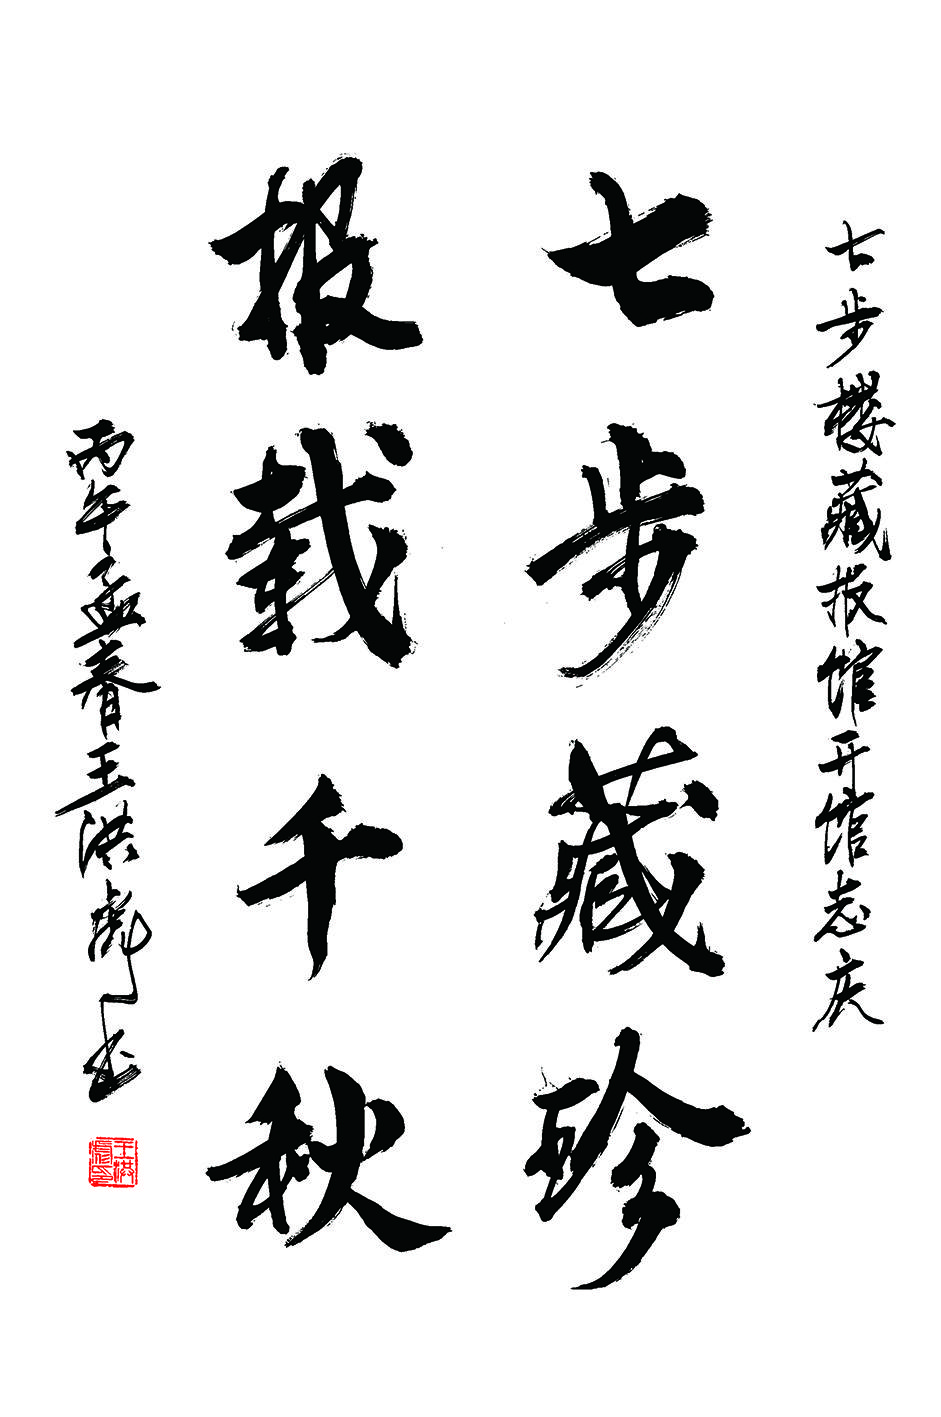 七步楼藏报馆开馆志庆
七步藏珍
报载千秋
丙午孟春王洪彪书
王洪彪印